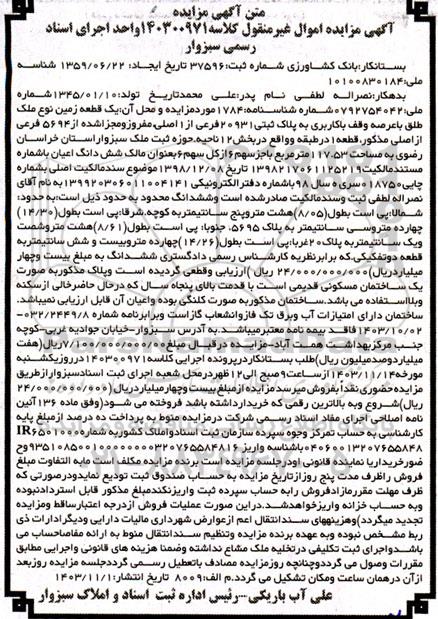 متن آگهی مزایده
آگهی مزایده اموال غیرمنقول کلاسه۱۴۰۳۰۰۹۷۱واحد اجرای اسناد
رسمی سبزوار
بستانکار:بانک کشاورزی شماره ثبت:۳۷۵۹۶ تاریخ ایجاد: ۱۳۵۹/۰۶/۲۲ شناسه
ملی:۱۰۱۰۰۸۳۰۱۸۴
بدهکار:نصراله لطفی نام پدر:علی محمدتاریخ تولد:۱۳۴۵/۰۱/۱۰شماره
ملی:۰۷۹۲۷۵۴۰۴۲شماره شناسنامه:۱۷۸۴موردمزایده و محل آن:یک قطعه زمین نوع ملک
طلق باعرصه وقف باکاربری به پلاک ثبتی۲۰۹۳۱فرعی از۱اصلی،مفروزومجزاشده از۵۶۹۴ فرعی
از اصلی مذکور،قطعه۱درطبقه وواقع دربخش۰۲ ناحیه،حوزه ثبت ملک سبزواراستان خراسان
رضوی به مساحت مترمربع باجزسهم۶ازکل سهم۶بعنوان مالک شش دانگ اعیان باشماره
مستندمالکیت تاریخ ۱۳۹۸/۱۲/۰۵ موضوع سندمالکیت اصلی بشماره
چاپی سری سال ۹۸باشماره دفترالکترونیکی به نام آقای
نصراله لطفی ثبت وسندمالکیت صادرشده است وششدانگ محدود به حدود ذیل است:به حدود:
شمالا:پی است بطول(۸/۰۵)هشت متروپنج سانتیمتربه کوچه،شرقا:پی است بطول(۱۴/۳۰)
چهارده متروسی سانتیمتر به پلاک ۵۶۹۵، جنوبا: پی است بطول(۸/۶۱)هشت متروشصت
ویک سانتیمتربه پلاک۲۰غربا:پی است بطول(۱۴/۲۶)چهارده متروبیست و شش سانتیمتربه
قطعه دوتفکیکی،که برابرنظریه کارشناس رسمی دادگستری ششدانگ به مبلغ بیست وچهار
میلیاردریال(۲۴/۰۰۰/۰۰۰/۰۰۰ ریال )ارزیابی وقطعی گردیده است وپلاک مذکوربه صورت
یک ساختمان مسکونی قدیمی است با قدمت بالای پنجاه سال که درحال حاضرخالی ازسکنه
وبلااستفاده می باشد.ساختمان مذکوربه صورت کلنگی بوده واعیان آن قابل ارزیابی نمیباشد.
ساختمان دارای امتیازات آب وبرق تک فازوانشعاب گازاست وبرابرنامه شماره ۰۳۲/۲۴۴۹/۸-
۱۴۰۳/۱۰/۰۲فاقد بیمه نامه معتبرمیباشد.به آدرس سبزوار-خیابان جوادیه غربی-کوچه
جنب مرکزبهداشت همت آباد-مزایده در قبال مبلغ ریال(هفت
میلیاردوصدمیلیون ریال)طلب بستانکاردرپرونده اجرایی کلاسه۱۴۰۳۰۰۹۷۱درروزیکشنبه
مورخه۱۴۰۳/۱۱/۱۴ازساعت۹ صبح الی۱۲ظهردرمحل شعبه اجرای ثبت اسنادسبزوارازطریق
مزایده حضوری نقدابفروش میرسدمزایده ازمبلغ بیست وچهارمیلیاردریال(۲۴/۰۰۰/۰۰۰/۰۰۰
ریال)شروع وبه بالاترین رقمی که خریدارداشته باشد فروخته می شود(وفق ماده ۱۳۶آئین
نامه اصلاحی اجرای مفاد اسناد رسمی شرکت درمزایده منوط به پرداخت ده درصد ازمبلغ پایه
کارشناسی به حساب تمرکز وجوه سپرده سازمان ثبت اسنادواملاک کشوربه شماره
باشناسه واریز وح
ضورخریداریا نماینده قانونی اودرجلسه مزایده است.برنده مزایده مکلف است مابه التفاوت مبلغ
فروش راظرف مدت پنج روزازتاریخ مزایده به حساب صندوق ثبت تودیع نمایدودرصورتی که
ظرف مهلت مقررمازادفروش رابه حساب سپرده ثبت واریزنکندمبلغ مذکور قابل استردادنبوده
وبه حساب خزانه واریزخواهدشد.دراین صورت عملیات فروش ازدرجه اعتبارساقط ومزایده
تجدید میگردد)وهزینههای سندانتقال اعم ازعوارض شهرداری مالیات دارایی ودیگرادارات ذی
ربط مشخص نبوده وبه عهده برنده مزایده وتنظیم سندانتقال منوط به ارائه مفاصاحساب می
باشدواجرای ثبت تکلیفی درتخلیه ملک مشاع نداشته وضمنا هزینه های قانونی واجرایی مطابق
مقررات وصول می گرددوچنانچه روزمزایده مصادف باتعطیل رسمی گرددجلسه مزایده روزبعد
ازآن درهمان ساعت ومکان تشکیل می گردد.م الف:۸۰۰۹ تاریخ انتشار:۱۴۰۳/۱۱/۱
علی آب باریکی-رئیس اداره ثبت اسناد و املاک سبزوار